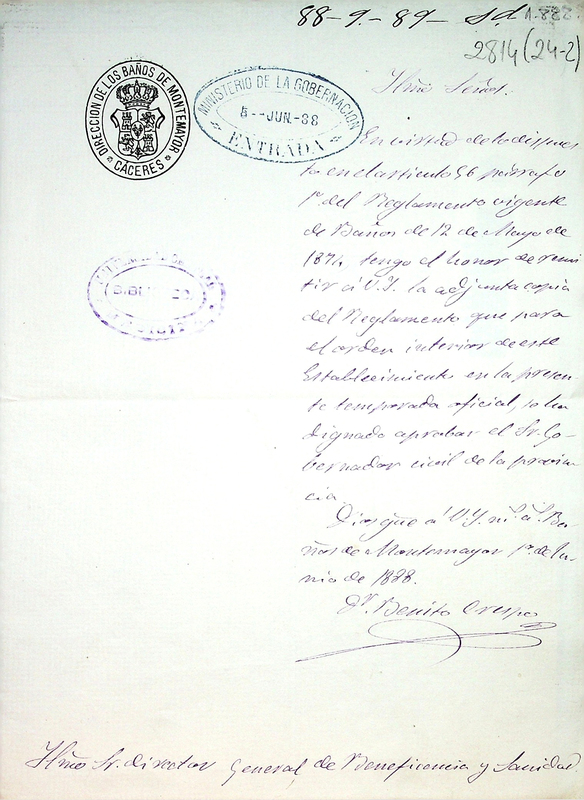 88-9.-89- Sd 1.888.
2814 (24-2)
DIRECCION DE LOS BAÑOS DE MONTEMAYOR
* CÁCERES *
MINISTERIO DE LA GOBERNACION
5--JUN.-88
ENTRADA
Ylmo Señor.
En virtud de lo dispues
to en el articulo 56 parrafo
1º del Reglamento vigente
de Baños de 12 de Mayo de
1874, tengo el honor de remi
tir á V.Y. la adjunta copia
del Reglamento que para
el orden interior de este
Establecimiento en la presen-
te temporada oficial, se ha
dignado aprobar el Sr. Go-
bernador civil de la provin
cia.
Dios gue á V.Y. ms. as. Ba
ños de Montemayor 1º de Ju-
nio de 1888.
Dr. Benito Crespo
Ylmo Sr. director General de Beneficencia y Sanidad